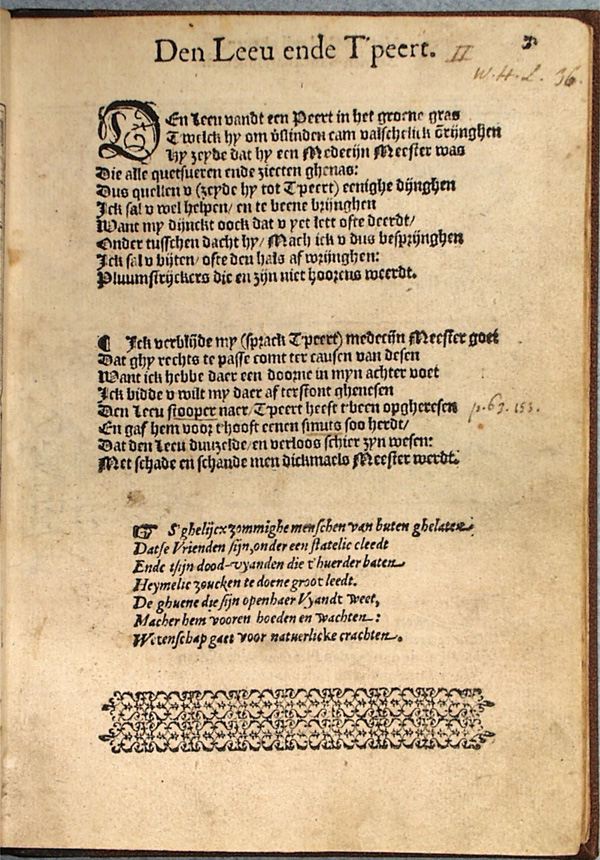 Den Leeu ende T'peert. II
W. H. L. 36.
DEn Leeu vandt een Peert in het groene gras
T'welck hy om v̄slinden cam valschelick ōrijnghen
Hy zeyde dat hy een Medecijn Meester was
Die alle quetsueren ende ziecten ghenas:
Dus quellen v (zeyde hy tot T'peert) eenighe dijnghen
Ick sal v wel helpen/ en te beene brijnghen
Want my dijnckt oock dat v yet lett ofte deerdt/
Onder tusschen dacht hy/ Mach ick v dus besprijnghen
Ick sal v bijten/ ofte den hals af wrijnghen:
Pluumstrijckers die en zijn niet hoorens weerdt.
¶ Ick verblijde my (sprack T'peert) medecijn Meester goet
Dat ghy rechts te passe comt ter causen van desen
Want ick hebbe daer een doorne in mijn achter voet
Ick bidde v wilt my daer af terstont ghenesen
Den Leeu stooper naer/ T'peert heeft t'been opgheresen p. 62. 153.
En gaf hem voor t'hooft eenen smuts soo herdt/
Dat den Leeu duuzelde/ en verloos schier zyn wesen:
Met schade en schande men dickmaels Meester werdt.
☞ S'ghelijcx zommighe menschen van buten ghelaten
Datse Vrienden sijn, onder een statelic cleedt
Ende tsijn dood-vyanden die t'huerder baten
Heymelic zoucken te doene groot leedt.
De ghuene die sijn openhaer Vyandt weet,
Macher hem vooren hoeden en wachten:
Wetenschap gaet voor natuerlicke crachten.